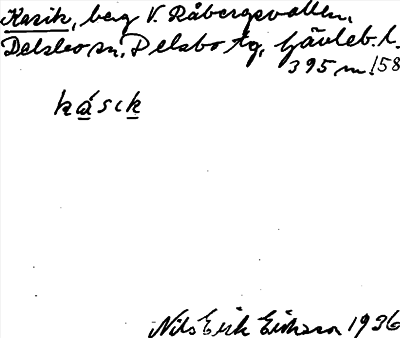 Kasik, berg V. Råbergsvallen,
Delsbo sn, Delsbo tg, Gävleb. l.
395 m. 158
kásik
Nils Erik Eriksson 1936